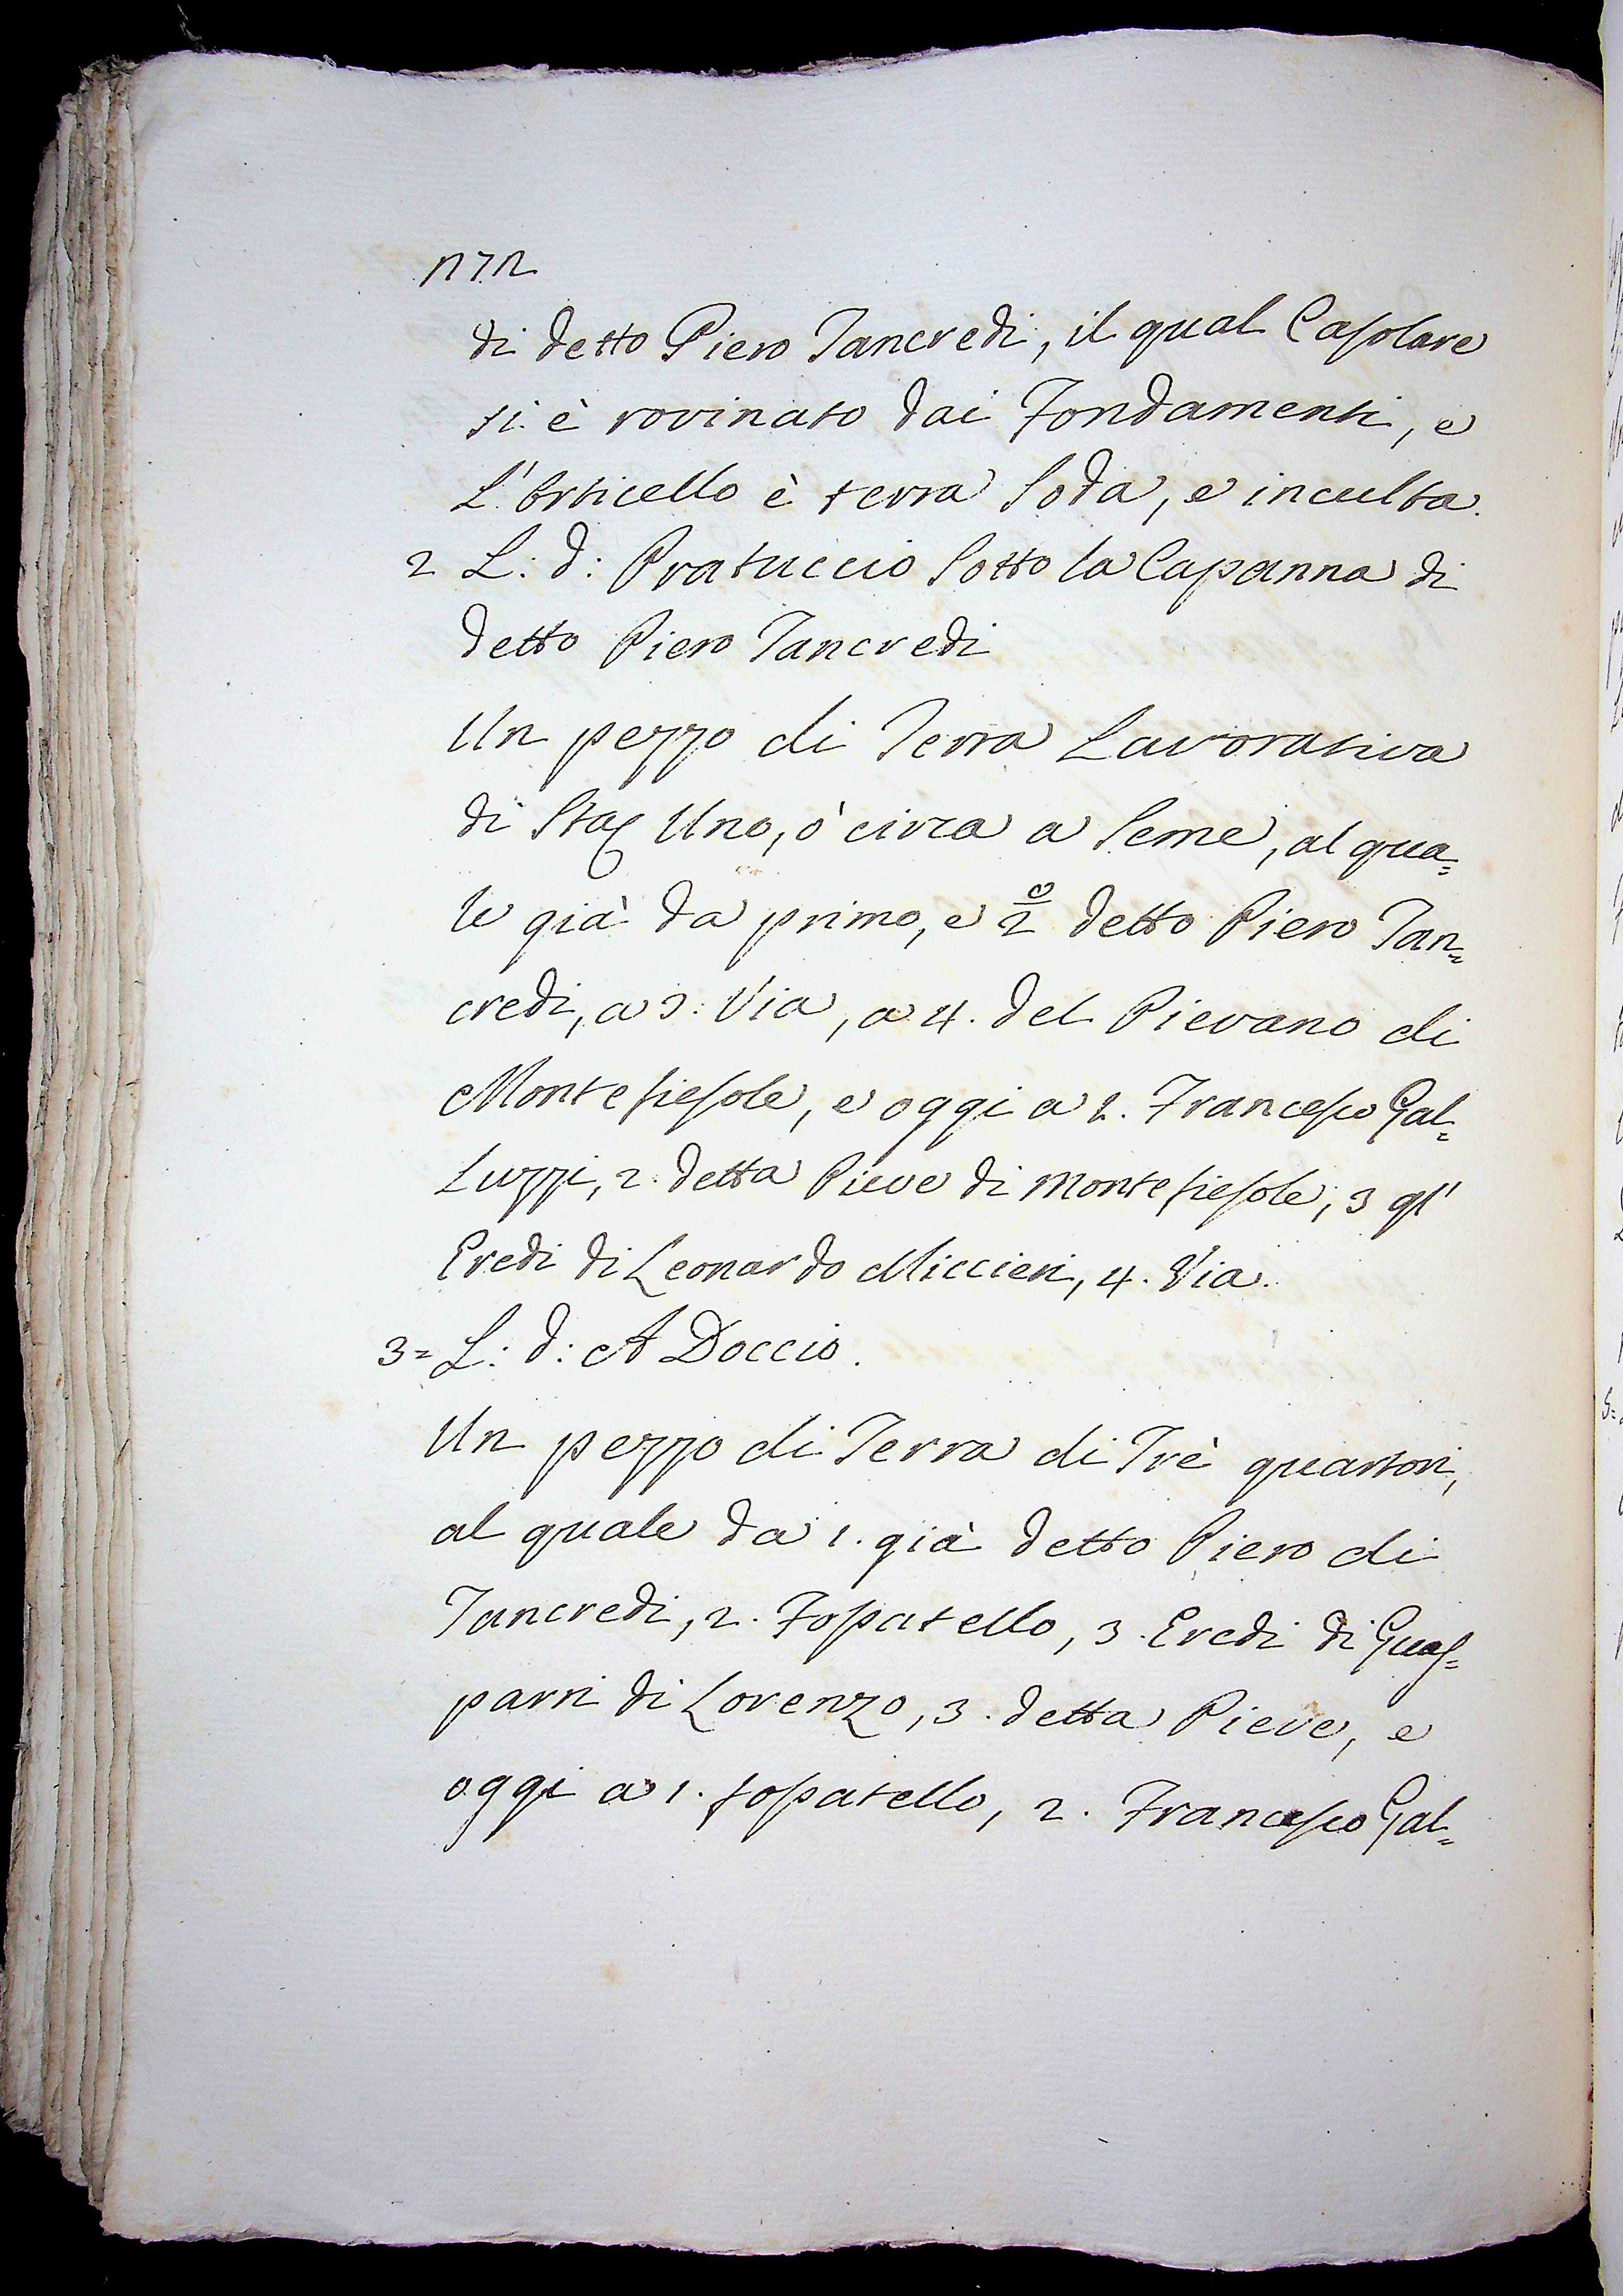 di detto Piero Tancredi, il qual Casolare
si è rovinato dai Fondamenti, e
L'Orticello è terra Soda, e inculta.
2 L: d: Pratuccio Sotto la Capanna di
detto Piero Tancredi
Un pezzo di Terra Lavorativa
di Sta: Uno, ò circa a Seme, al qua=
le già da primo, e 2° detto Piero Tan=
credi, a 3: Via, a 4. del Pievano di
Montefiesole, e oggi a 1. Francesco Gal=
Luzzi, 2. detta Pieve di Montefiesole, 3 gl'
Eredi di Leonardo Miccieri, 4. Via.
3= L: d: A Doccio.
Un pezzo di Terra di Trè quartori,
al quale da 1. già detto Piero di
Tancredi, 2. Fossatello, 3. Eredi di Guas=
parri di Lorenzo, 3. detta Pieve, e
oggi a 1. fossatello, 2. Francesco Gal=